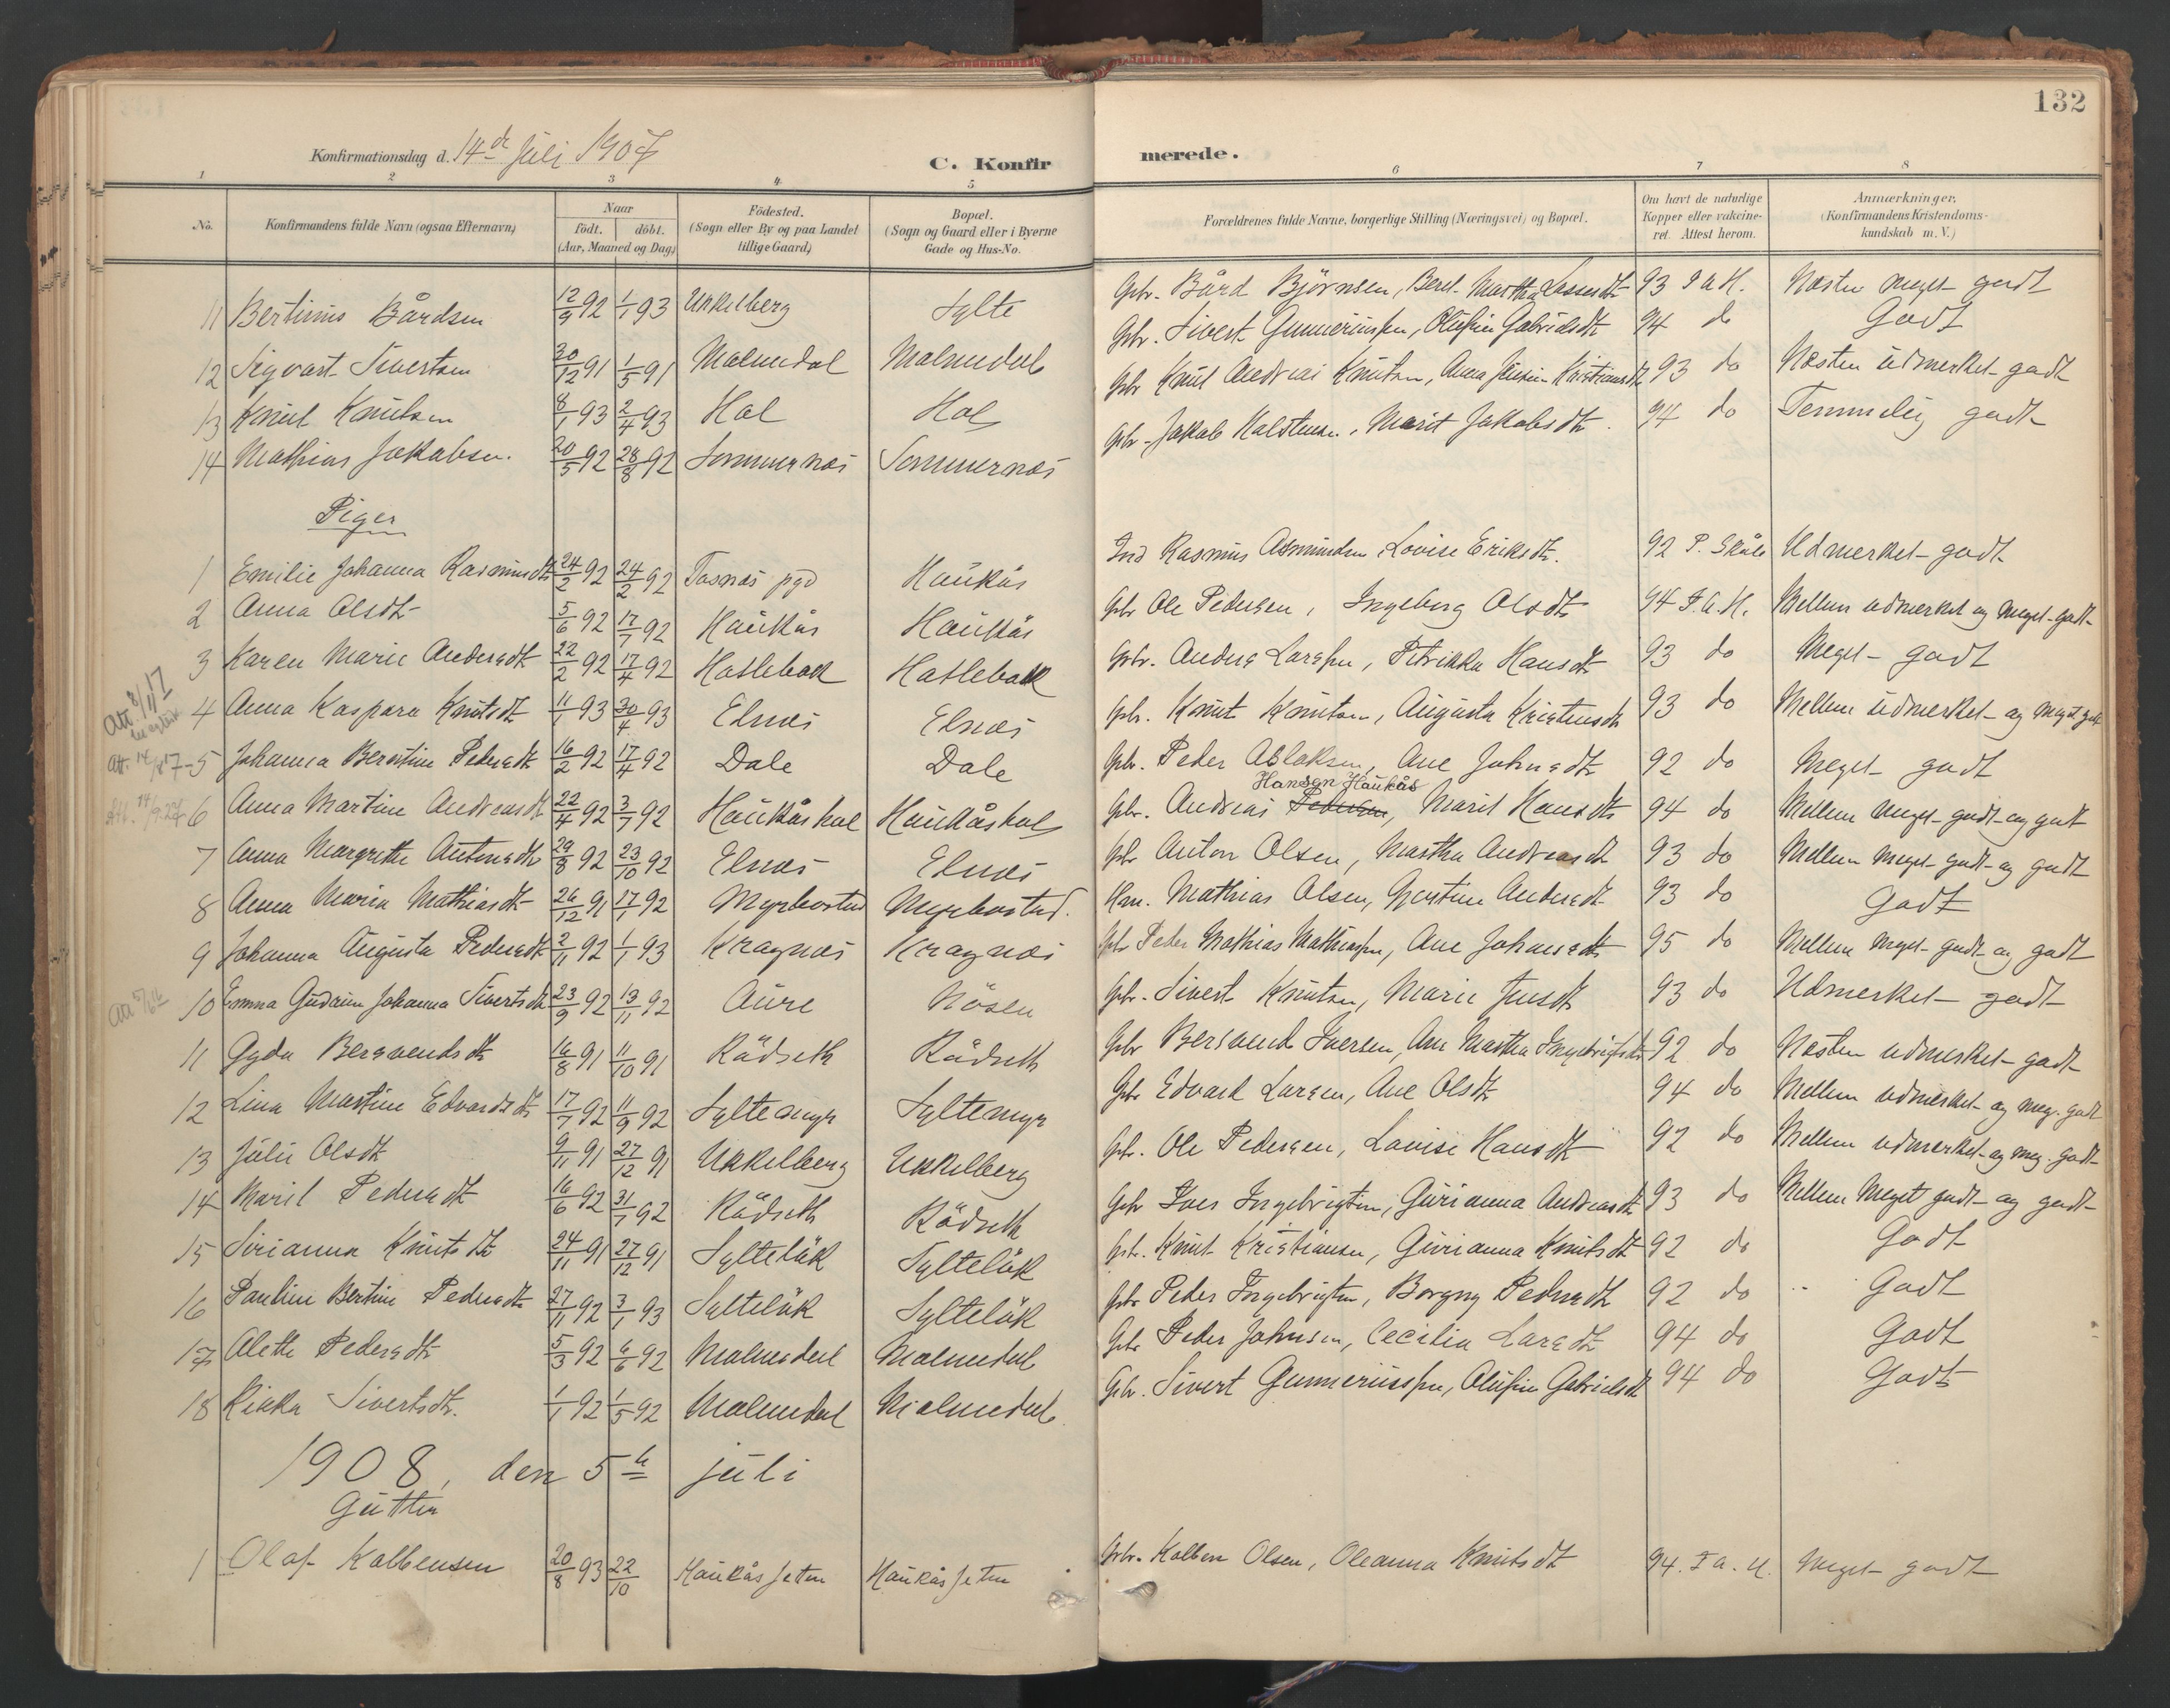 132
Konfirmationsdag d. 14de Juli 1907
C. Konfirmerede.
1 2 3 4 5 6 7 8
No. Konfirmandens fulde Navn (ogsaa Efternavn) Naar født. døbt. (Aar, Maaned og Dag) Fødested. (Sogn eller By og paa Landet tillige Gaard) Bopæl. (Sogn og Gaard eller i Byerne Gade og Hus-No. Forældrenes fulde Navne, borgerlige Stilling (Næringsvei) og Bopæl. Om havt de naturlige Kopper eller vakcineret. Attest herom. Anmærkninger. (Konfirmandens Kristendomskundskab m. V.)
11 Bertinus Bårdsen 12/9 92 1/1 93 Ukkelberg Sylte Gbr. Bård Björnsen, Beret Martha Lassesdtr 93 T a H. Næsten meget godt
12 Sigvart Sivertsen 30/12 91 1/5 91 Malmedal Malmedal Gbr. Sivert Gunneriussen, Olufine Gabrielsdtr 94 do Godt
13 Knut Knutsen 8/1 93 2/4 93 Hol Hol Gbr Knut Andreas Knutsen, Anna Jensine Kristiansdtr 93 do Næsten udmerket godt
14 Mathias Jakobsen. 20/5 92 28/8 92 Sommernæs Sommernæs Gbr. Jakob Halstensen, Marit Jakobsdtr. 94 do Temmelig godt
Piger
1 Emilie Johanna Rasmusdtr 24/2 92 24/2 92 Tosnæs pgd Haukås Ind Rasmus Asmundsen, Lovise Eriksdtr. 92 P. Skåle Udmerket godt
2 Anna Olsdtr 5/6 92 17/7 92 Haukås Haukås Gbr Ole Pedersen, Ingeborg Olsdtr 94 T. a. H. Mellem udmerket og meget godt
3 Karen Marie Andersdtr 22/2 92 17/4 92 Hatlebak Hatlebak Gbr. Anders Larssen, Petrikka Hansdtr 93 do Meget godt
Att. 8/11 17
4 Anna Kaspara Knutsdtr 11/1 93 30/4 93 Elnæs Elnæs Gbr. Knut Knutsen, Augusta Kristensdtr 93 do Mellem udmerket og meget godt
Att. 14/8 17 5 Johanna Berntine Pedersdtr 16/2 92 17/4 92 Dale Dale Gbr. Peder Aslaksen, Ane Johnsdtr 92 do Meget godt
Hansen Haukås
Att. 14/9.24 6 Anna Martine Andreasdtr 22/4 92 3/7 92 Haukåshol Haukåshol Gbr. Andreas Pedersen, Marit Hansdtr 94 do Mellem meget godt og godt
7 Anna Margrethe Antonsdtr 29/8 92 23/10 92 Elnæs Elnæs Gbr Anton Olsen, Martha Andreasdtr 93 do Mellem meget godt og godt
8 Anna Maria Mathiasdtr 26/12 91 17/1 92 Myrbostad Myrbostad. Hm. Mathias Olsen, Gjertine Andersdtr 93 do Godt
9 Johanna Augusta Pedersdtr 2/11 92 1/1 93 Kragnæs Kragnæs Gbr Peder Mathias Mathiassen, Ane Johansdtr 95 do Mellem meget godt og godt
10 Emma Gudrun Johanna Sivertsdtr 23/9 92 13/11 92 Aure Nösen Gbr. Sivert Knutsen, Marie Jensdtr 93 do Udmerket godt
11 Gyda Bersvendsdtr 16/8 91 11/10 91 Rådseth Rådseth Gbr Bersvend Iversen, Ane Martha Ingebrigtsdtr 92 do Næsten udmerket godt
12 Lina Martine Edvardsdtr 17/7 92 11/9 92 Syltemyr Syltemyr Gbr Edvard Larsen, Ane Olsdtr 94 do Mellem udmerket og meg. godt
13 Julie Olsdtr 9/11 91 27/12 91 Ukkelberg Ukkelberg Gbr. Ole Pedersen, Lovise Hansdtr 92 do Mellem udmerket og meg. godt
14 Marit Pedersdtr 16/6 92 31/7 92 Rådseth Rådseth Gbr Iver Ingebrigtsen, Gurianna Andreasdtr 93 do Mellem Meget godt og godt
15 Sirianna Knutsdtr 24/11 91 27/12 91 Sylteløk Sylteløk Gbr. Knut Kristiansen, Gurianna Knutsdtr 92 do Godt
16 Pauline Bertine Pedersdtr 27/11 92 3/1 93 Sylteløk Sylteløk Gbr Peder Ingebrigtsen, Borgny Pedersdtr 92 do Godt
17 Alette Pedersdtr 5/3 92 6/6 92 Malmedal Malmedal Gbr Peder Johnsen, Cecilia Larsdtr 94 do Godt
18 Rikka Sivertsdtr. 1/1 92 1/5 92 Malmedal Malmedal Gbr. Sivert Gunneriussen, Olufine Gabrielsdtr 94 do Godt
1908, den 5te juli
Gutter
1 Olaf Kolbensen 20/8 93 22/10 Haukåsseten Haukåsseten Gbr. Kolben Olsen, Oleanna Knutsdtr 94. T a. H. Meget godt